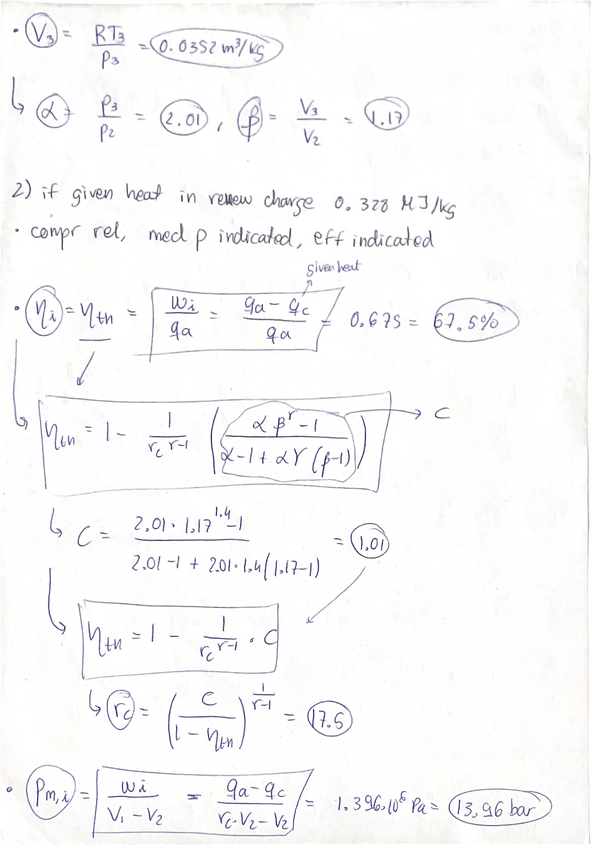 · V₃ = RT₃ / P₃ = 0.0352 m³/kg
↳ α = P₃ / P₂ = 2.01 , β = V₃ / V₂ = 1.17
2) if given heat in renew charge 0.328 MJ/kg
· compr rel, med p indicated, eff indicated
given heat
· ηi = ηth = wi / qa = (qa - qc) / qa = 0.675 = 67.5%
ηth = 1 - 1 / rc^(γ-1) ( (αβ^γ - 1) / (α - 1 + αγ(β-1)) ) → C
↳ C = (2.01 · 1.17^1.4 - 1) / (2.01 - 1 + 2.01 · 1.4(1.17 - 1)) = 1.01
ηth = 1 - 1 / rc^(γ-1) · C
↳ rc = ( C / (1 - ηth) )^(1/(γ-1)) = 17.5
· Pm,i = wi / (V₁ - V₂) = (qa - qc) / (rc·V₂ - V₂) = 1.396.10⁶ Pa = 13,96 bar